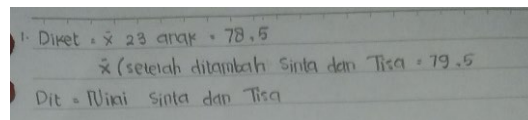 1. Diket : x̄ 23 anak = 78,5
x̄ (setelah ditambah Sinta dan Tisa = 79,5
Dit = Nilai Sinta dan Tisa